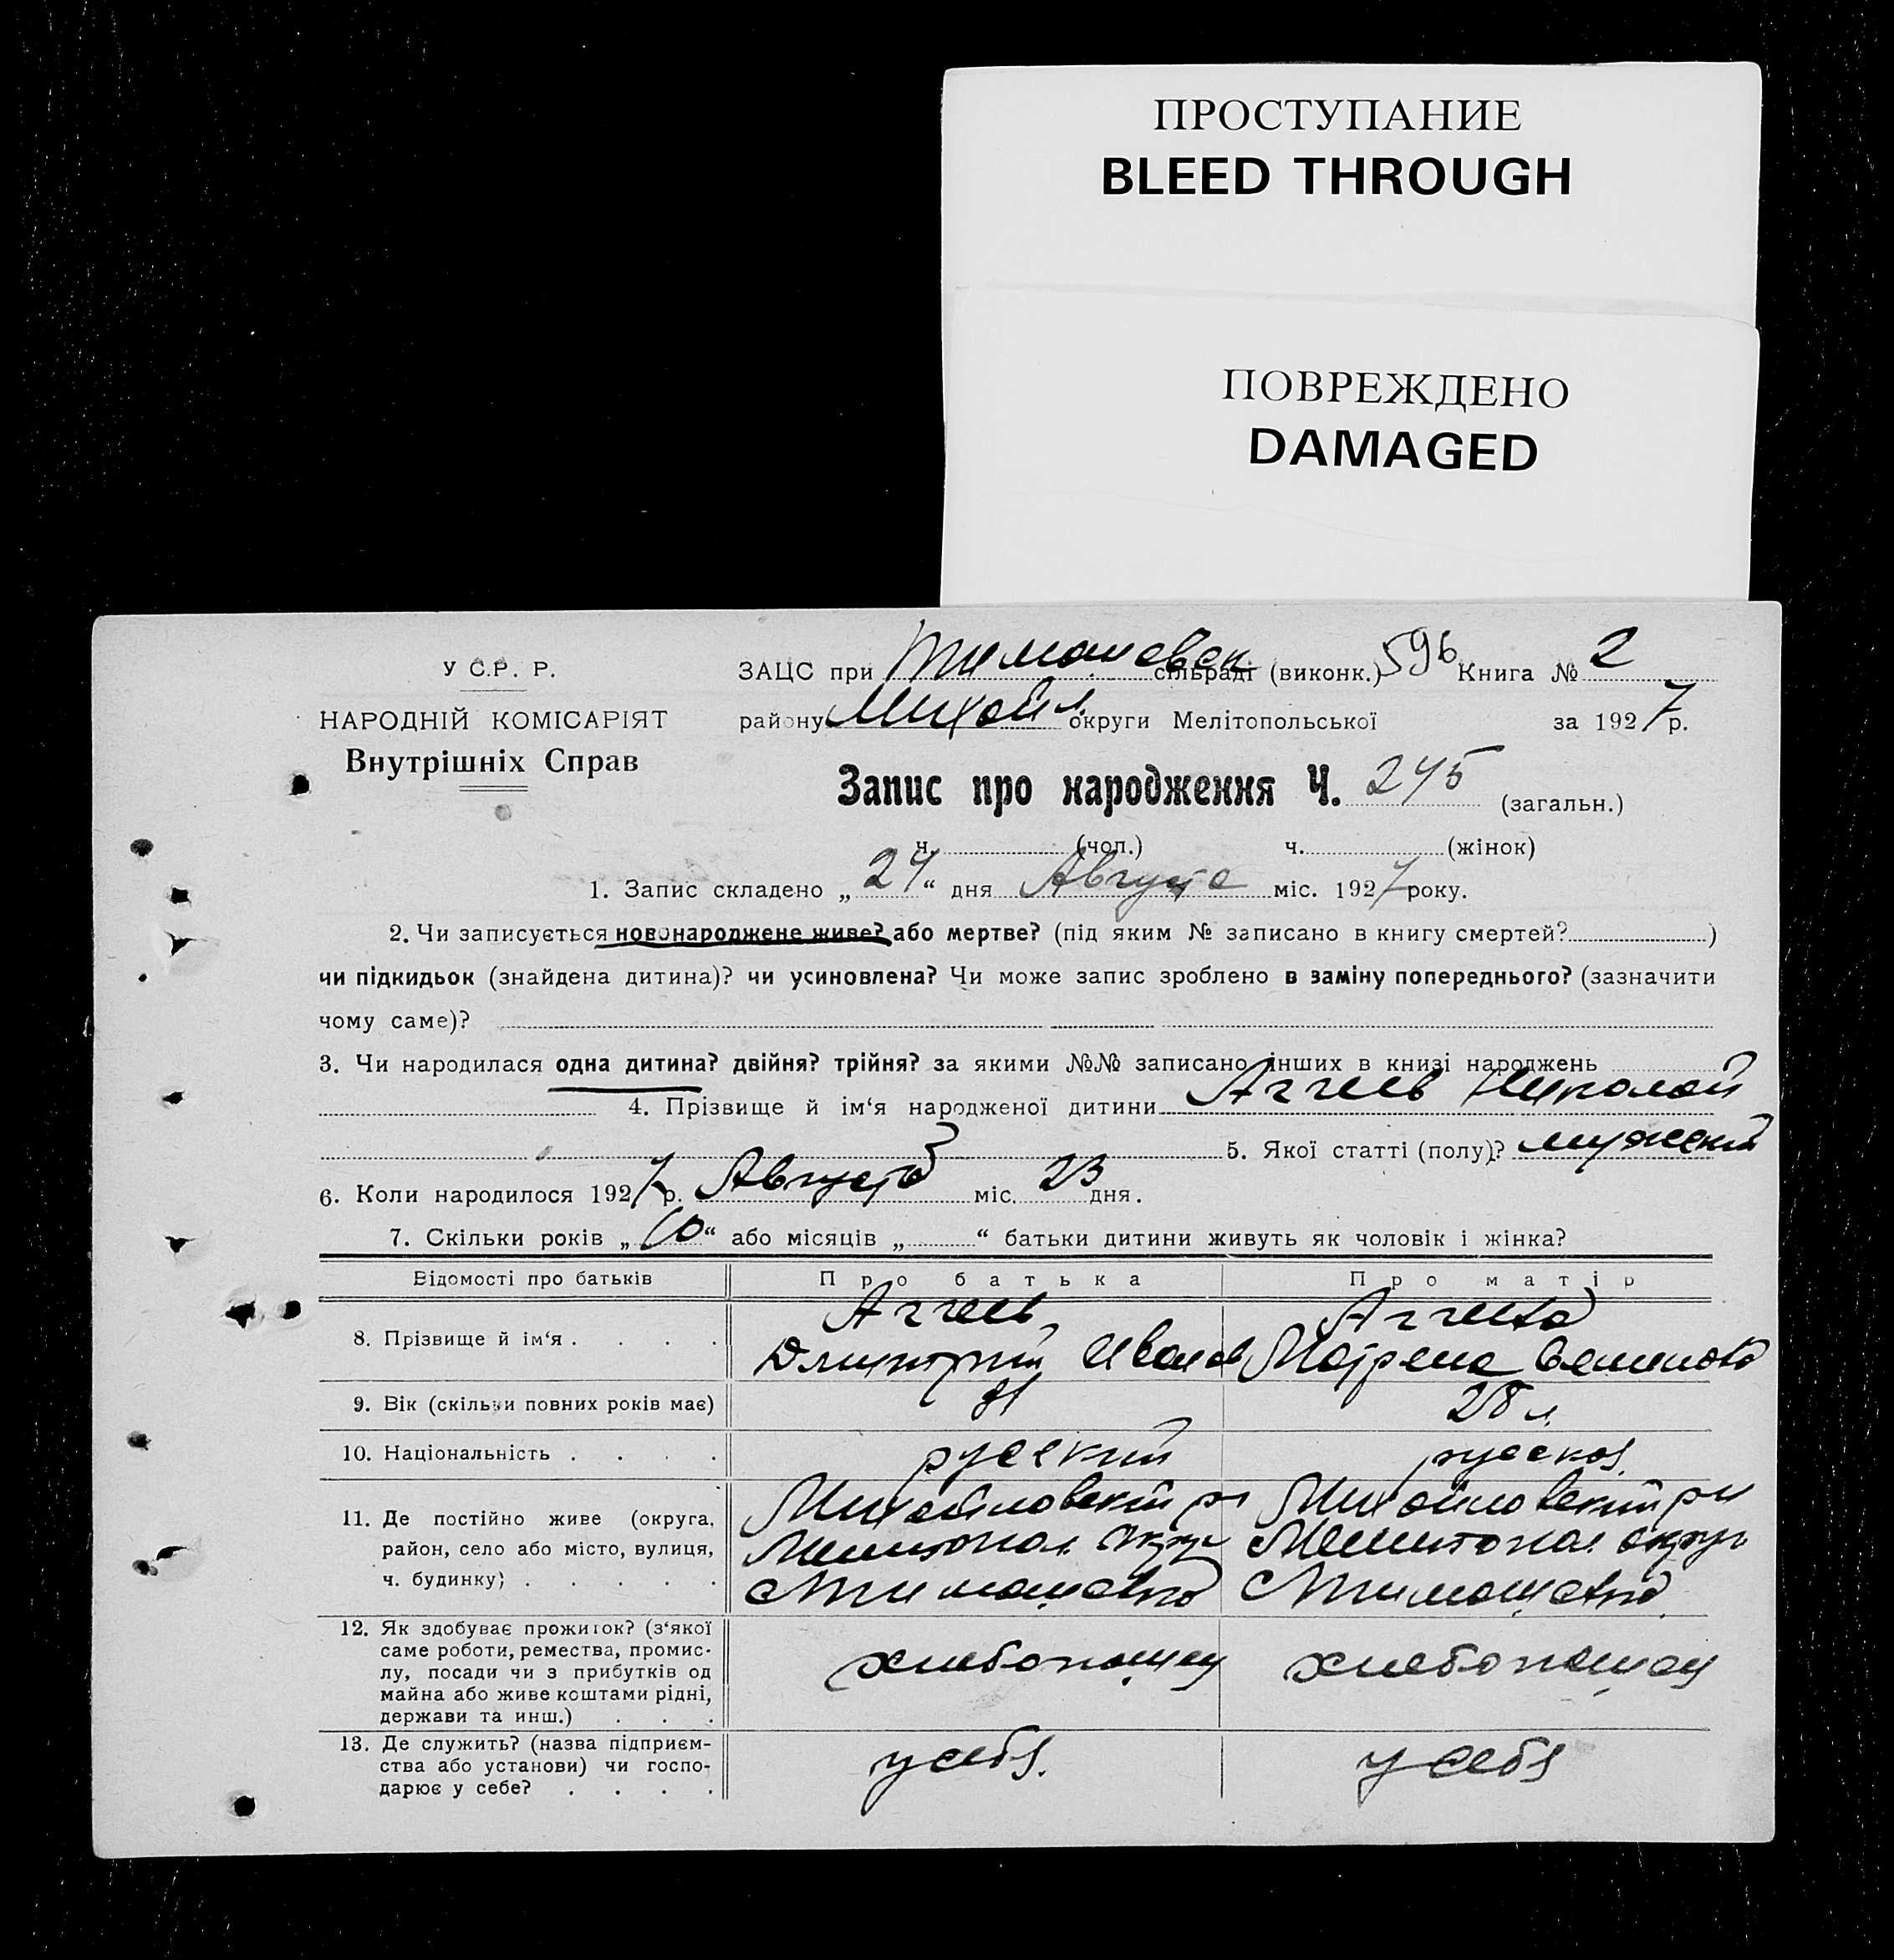 ПРОСТУПАНИЕ
BLEED THROUGH
ПОВРЕЖДЕНО
DAMAGED
У С.Р. Р.
НАРОДНІЙ КОМІСАРІЯТ
Внутрішніх Справ
ЗАЦС при Тимошевск сільраді (виконк.) 596 Книга № 2
району Михайл. округи Мелітопольської за 1927 р.
Запис про народження Ч. 245 (загальн.)
ч. (чол.) ч. (жінок)
1. Запис складено „ 24 “ дня Августа міс. 1927 року.
2. Чи записується новонароджене живе? або мертве? (під яким № записано в книгу смертей? )
чи підкидьок (знайдена дитина)? чи усиновлена? Чи може запис зроблено в заміну попереднього? (зазначити
чому саме)?
3. Чи народилася одна дитина? двійня? трійня? за якими №№ записано інших в книзі народжень
4. Прізвище й ім‘я народженої дитини Аггеев Николай
5. Якої статті (полу)? мужской
6. Коли народилося 1927 р. Августа міс. 23 дня.
7. Скільки років „ 10 “ або місяців „ “ батьки дитини живуть як чоловік і жінка?
Відомості про батьків Про батька Про матір
8. Прізвище й ім‘я . . . . Аггеев Аггеева
Дмитрий Иванов Матрена Семенова
9. Вік (скільки повних років має) 31 28 л.
10. Національність . . . . русский русская
11. Де постійно живе (округа, район, село або місто, вулиця, ч. будинку) . . . . .
Михайловский рн Михайловский рн
Мелитопол. округ Мелитопол. округ
с Тимошевка с Тимошевка
12. Як здобуває прожиток? (з‘якої саме роботи, ремества, промислу, посади чи з прибутків од майна або живе коштами рідні, держави та инш.) . . .
хлебопашец хлебопашец
13. Де служить? (назва підприємства або установи) чи господарює у себе? . . . .
у себя. у себя